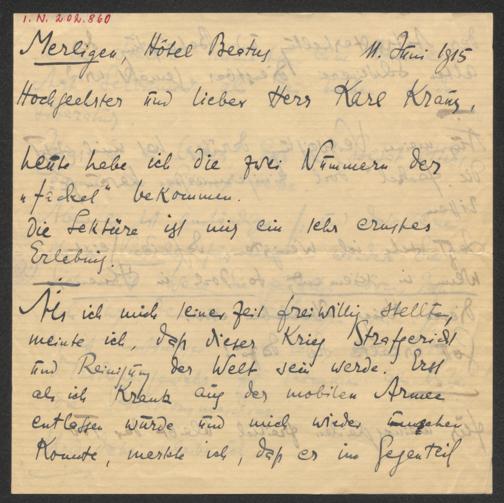 I. N. 202.860
Merligen, Hôtel Beatus 11. Juni 1915
Hochgeehrter und lieber Herr Karl Kraus,
heute habe ich die zwei Nummern der
„Fackel" bekommen.
Die Lektüre ist mir ein sehr ernstes
Erlebnis.
Als ich mich seiner Zeit freiwillig stellte,
meinte ich, daß dieser Krieg Strafgericht
und Reinigung der Welt sein werde. Erst
als ich krank aus der mobilen Armee
entlassen wurde und mich wieder umsehen
konnte, merkte ich, daß er im Gegenteil